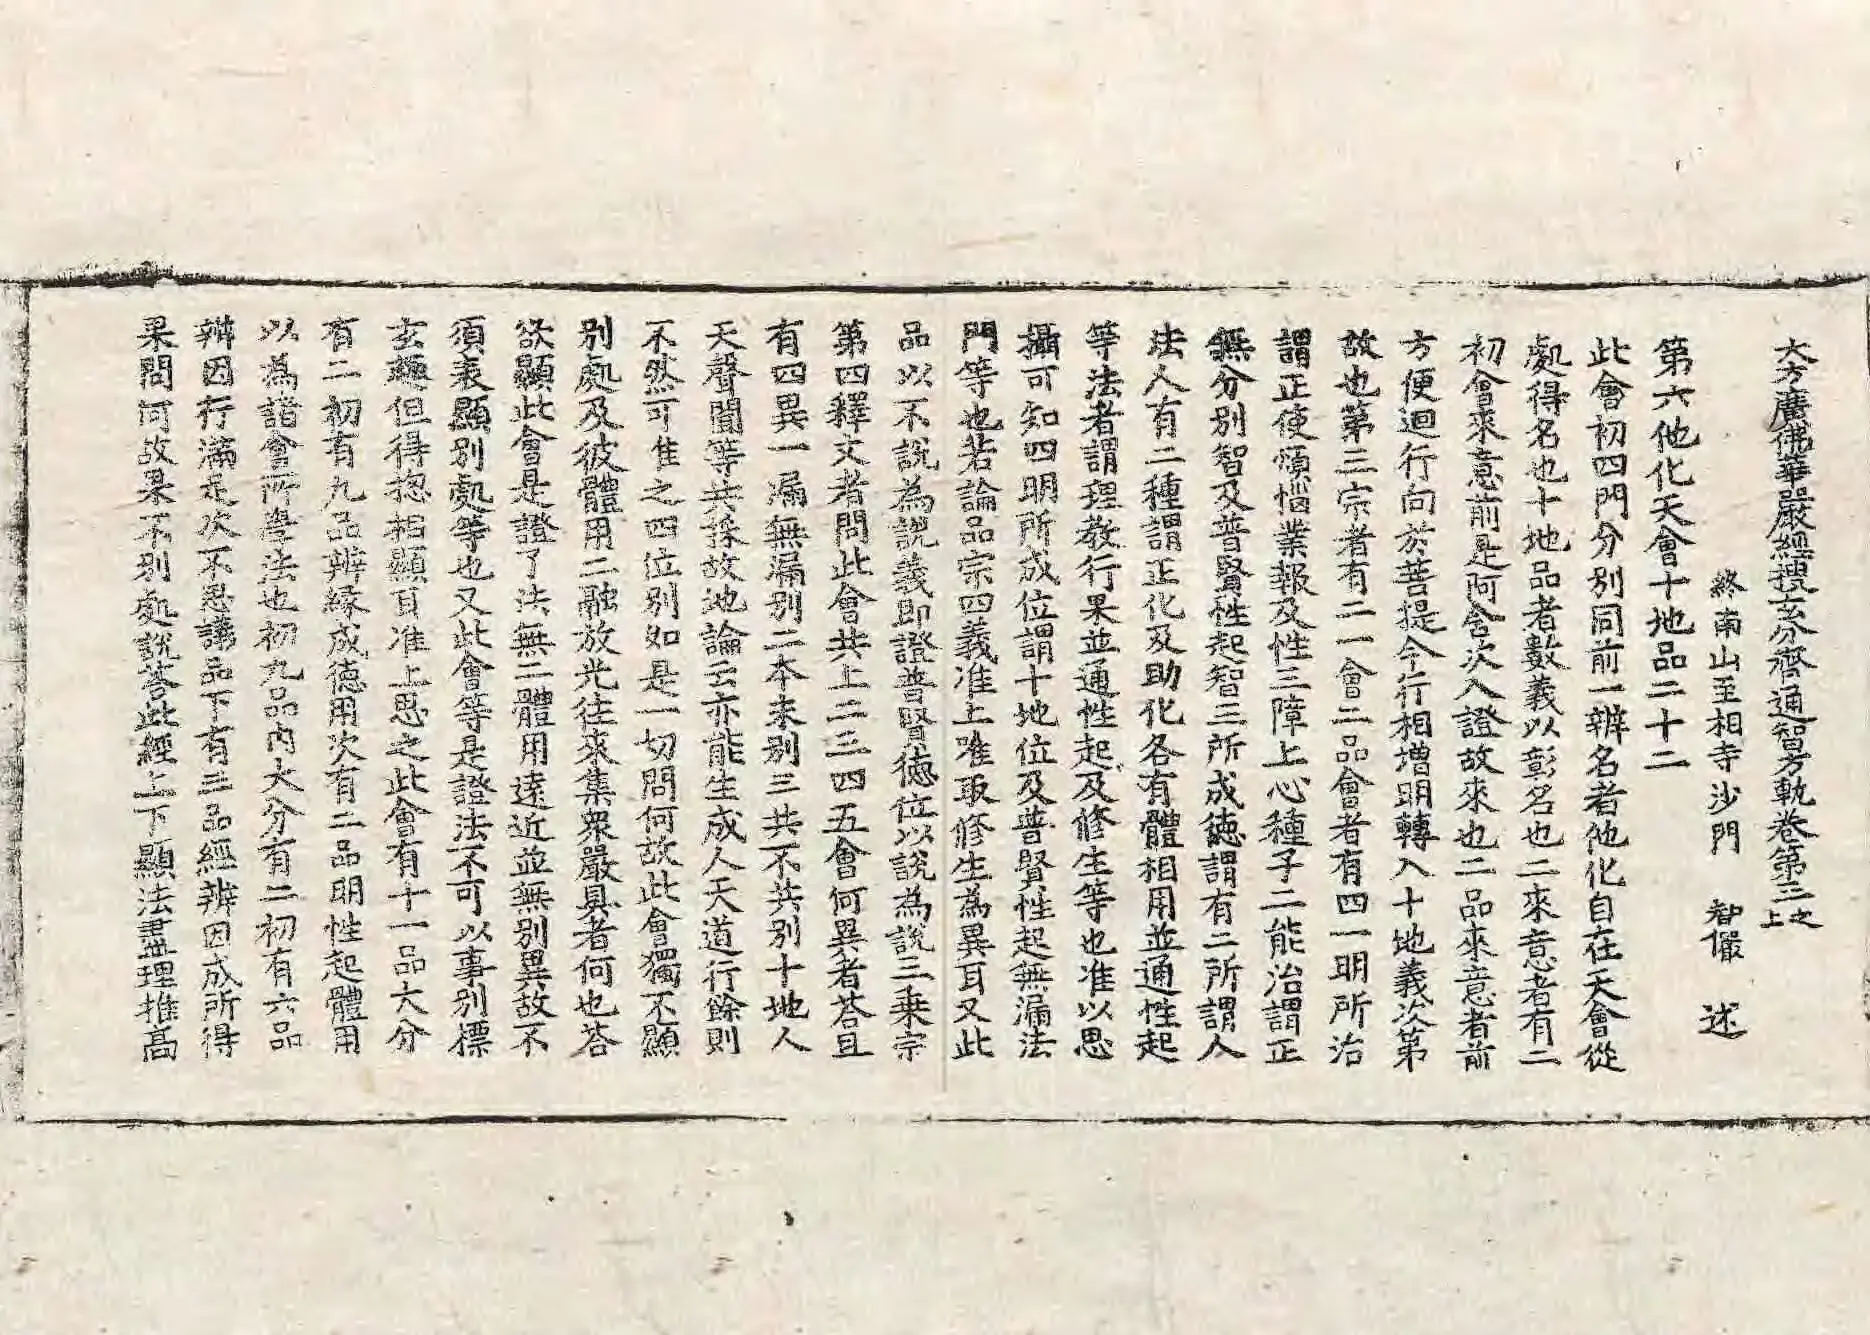 大方廣佛華嚴經搜玄分齊通智方軌卷第三之上
終南山至相寺沙門 智儼 述
第六他化天會十地品二十二
此會初四門分別同前一辨名者他化自在天會從
處得名也十地品者數義以彰名也二來意者有二
初會來意前是阿含次入證故來也二品來意者前
方便迴行向於菩提今行相增明轉入十地義次第
故也第三宗者有二一會二品會者有四一明所治
謂正使煩惱業報及性三障上心種子二能治謂正
無分別智及普賢性起智三所成德謂有二所謂人
法人有二種謂正化及助化各有體相用並通性起
等法者謂理教行果並通性起及修生等也准以思
攝可知四明所成位謂十地位及普賢性起無漏法
門等也若論品宗四義准上唯取修生為異耳又此
品以不說為說義即證普賢德位以說為說三乘宗
第四釋文者問此會共上二三四五會何異者答且
有四異一漏無漏別二本末別三共不共別十地人
天聲聞等共採故地論云亦能生成人天道行餘則
不然可准之四位別如是一切問何故此會獨不顯
別處及彼體用二融放光往來集眾嚴具者何也答
欲顯此會是證了法無二體用遠近並無別異故不
須表顯別處等也又此會等是證法不可以事別標
玄趣但得揔相顯頁准上思之此會有十一品大分
有二初有九品辨緣成德用次有二品明性起體用
以為諸會所學法也初九品內大分有二初有六品
辨因行滿足次不思議品下有三品經辨因成所得
果問何故果不別處說答此經上下顯法盡理推高